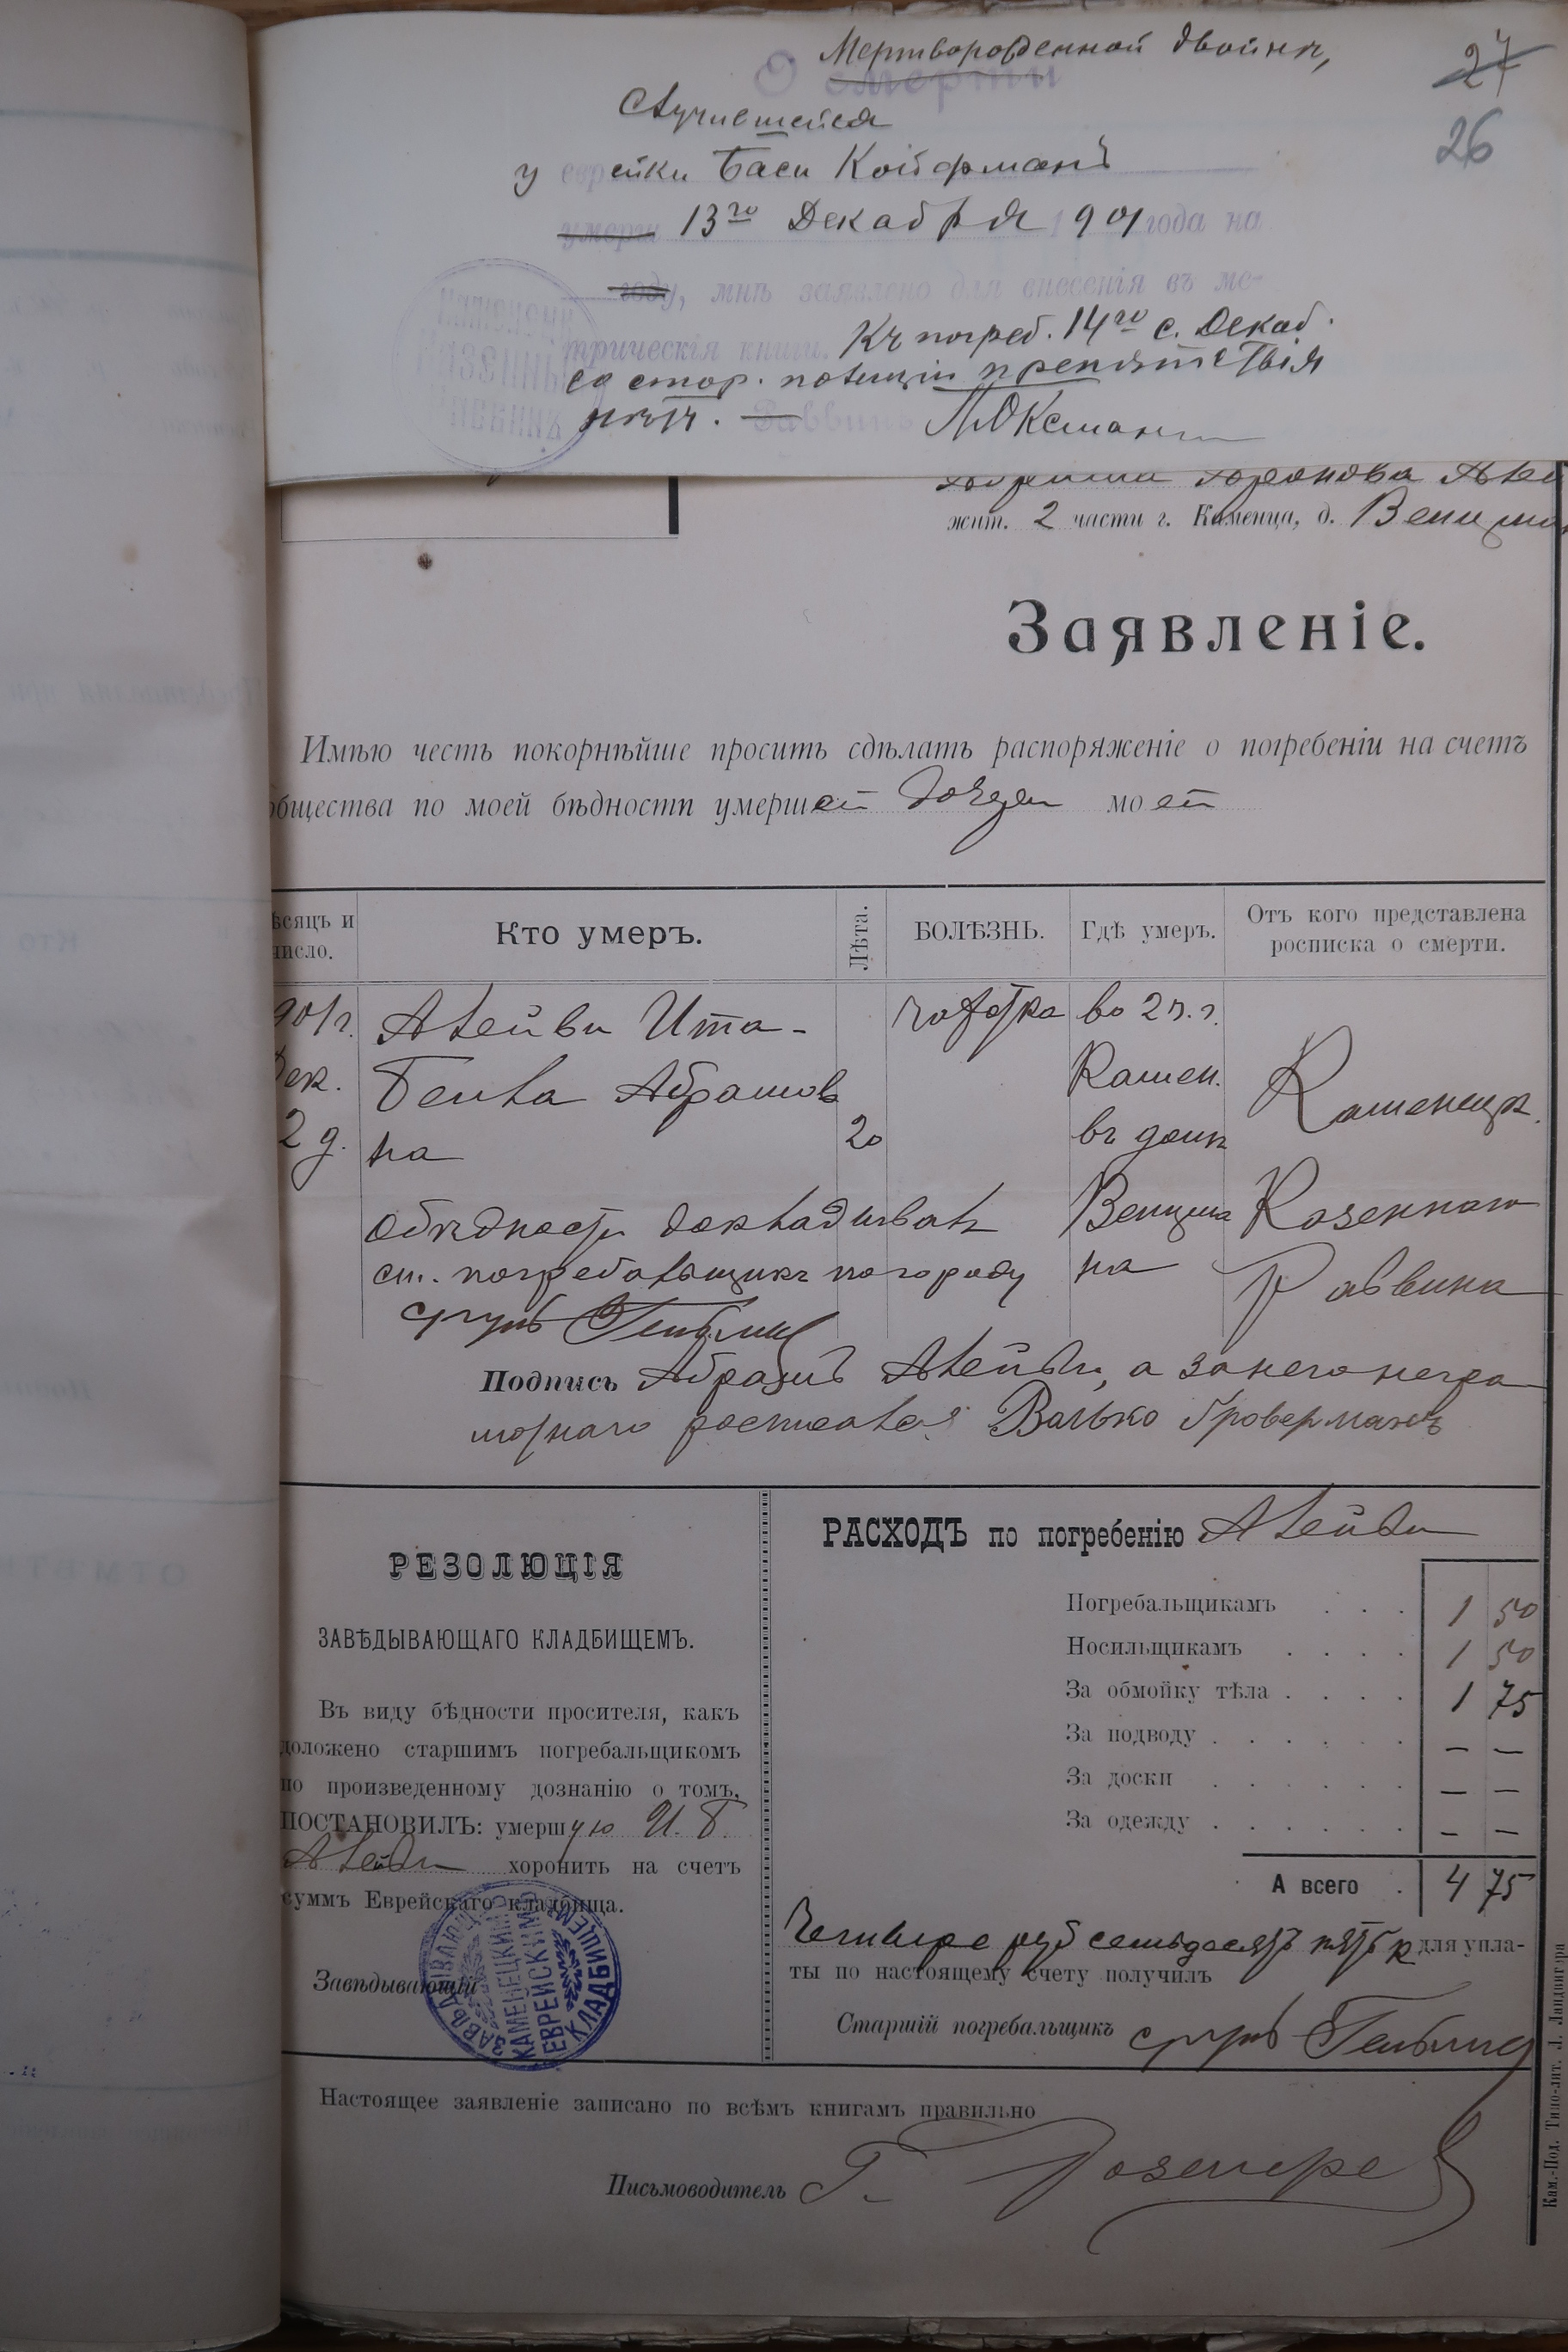 27
26
Мертворожденной двойни,
О смерти
Случившейся
у еврейки Баси Койфманъ
умерш 13го Декабря 1901 года на
году, мнѣ заявлено для внесенія въ ме-
трическія книги. Къ погреб. 14го с. Декаб.
со стор. полиціи препятствія
нѣтъ. — Раввинъ
жит. 2 части г. Каменца, д.
Заявленіе.
Имѣю честь покорнѣйше просить сдѣлать распоряженіе о погребеніи на счетъ
общества по моей бѣдности умершей дочери моей
ѣсяцъ и число.
Кто умеръ.
Лѣта.
БОЛѢЗНЬ.
Гдѣ умеръ.
Отъ кого представлена росписка о смерти.
901 г.
Дек.
2 д.
Алейви Ита-
Бейла Абрамов
на
20
чахотка
во 2 ч. г.
Камен.
въ домѣ
Венцма
на
Каменецк.
Казеннаго
Раввина
о бѣдности докладывалъ
ст. погребальщикъ по городу
Подпись Абрамъ Алейви, а за него негра
мотнаго росписался Валько Гроверманъ
РЕЗОЛЮЦІЯ
ЗАВѢДЫВАЮЩАГО КЛАДБИЩЕМЪ.
Въ виду бѣдности просителя, какъ
доложено старшимъ погребальщикомъ
по произведенному дознанію о томъ,
ПОСТАНОВИЛЪ: умершую И. Б.
Алейви хоронить на счетъ
суммъ Еврейскаго кладбища.
Завѣдывающій
ЗАВѢДЫВАЮЩ.
КАМЕНЕЦКИМЪ
ЕВРЕЙСКИМЪ
КЛАДБИЩЕМЪ
РАСХОДЪ по погребенію Алейви
Погребальщикамъ . . . 1 50
Носильщикамъ . . . . 1 50
За обмойку тѣла . . . . 1 75
За подводу . . . . . . — —
За доски . . . . . . — —
За одежду . . . . . . — —
А всего . 4 75
Четыре руб семьдесятъ пять к для упла-
ты по настоящему счету получилъ
Старшій погребальщикъ
Настоящее заявленіе записано по всѣмъ книгамъ правильно
Письмоводитель Г.
Кам.-Под. Типо-лит. Л. Ландвигера